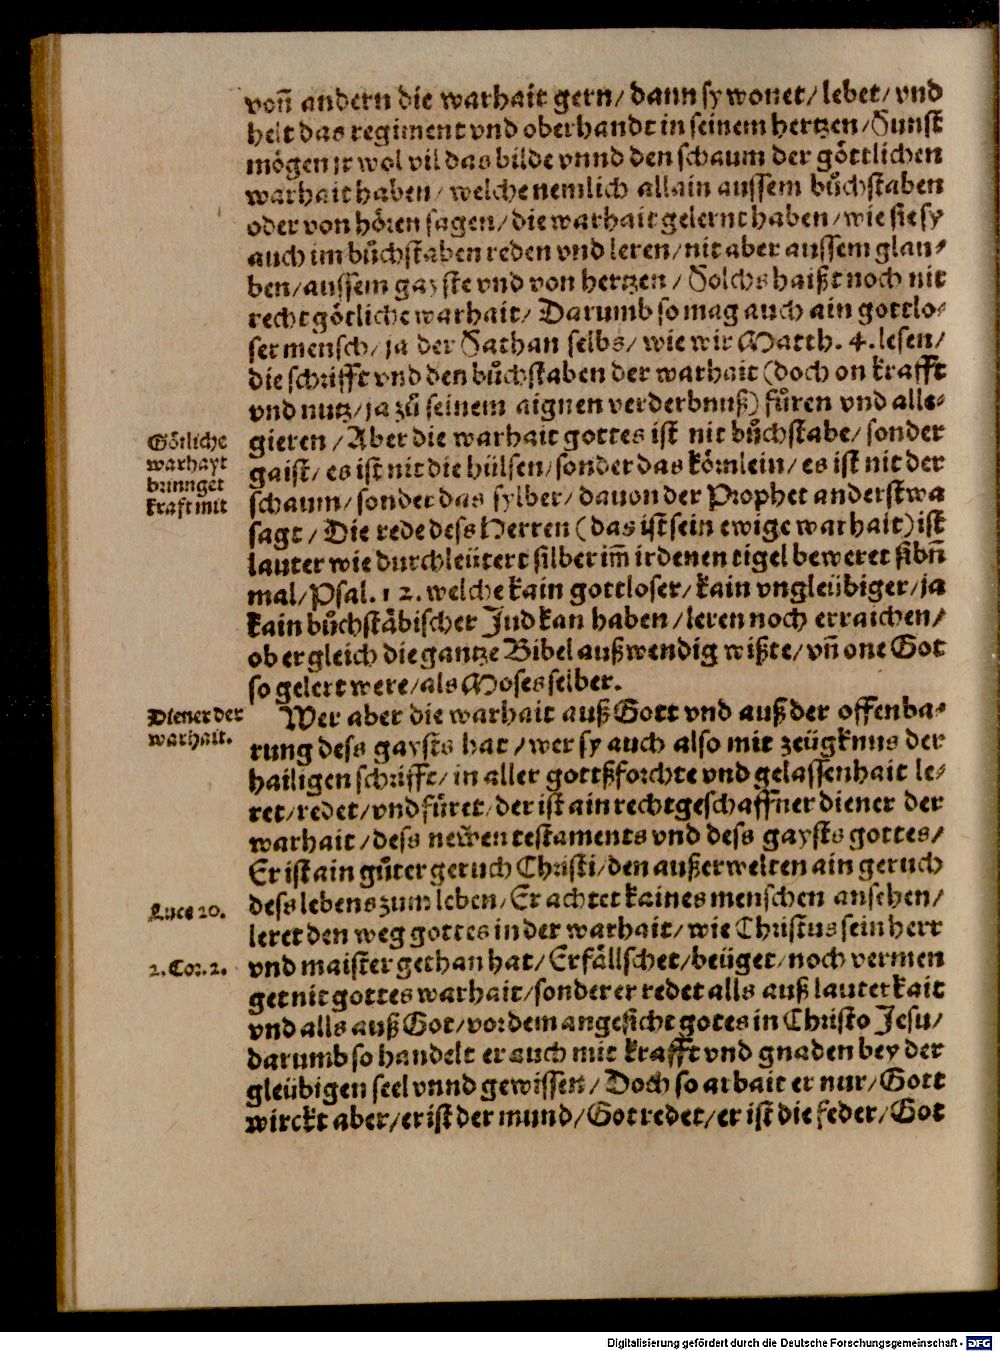 voñ andern die warhait gern/ dann sy wonet/ lebet/ vnd
helt das regiment vnd oberhandt in seinem hertzen/ Sunst
mögen jr wol vil das bilde vnnd den schaum der göttlichen
warhait haben/ welche nemlich allain aussem bůchstaben
oder von hören sagen/ die warhait gelernt haben/ wie sie sy
auch im bůchstaben reden vnd leren/ nit aber aussem glau⸗
ben/ aussem gayste vnd von hertzen/ Solchs haißt noch nit
recht götliche warhait/ Darumb so mag auch ain gottlo⸗
ser mensch/ ja der Sathan selbs/ wie wir Matth. 4. lesen/
die schrifft vnd den bůchstaben der warhait (doch on krafft
vnd nutz/ ja zů seinem aignen verderbnuß) fůren vnd alle⸗
Götliche
warhayt
brinnget
kraft mit
gieren/ Aber die warhait gottes ist nit bůchstabe/ sonder
gaist/ es ist nit die hülsen/ sonder das körnlein/ es ist nit der
schaum/ sonder das sylber/ dauon der Prophet anderstwa
sagt/ Die rede dess Herren (das ist sein ewige warhait) ist
lauter wie durchleütert silber im̃ irdenen tigel beweret sibñ
mal/ Psal. 12. welche kain gottloser/ kain vngleübiger/ ja
kain bůchstäbischer Jud kan haben/ leren noch erraichen/
ob er gleich die gantze Bibel außwendig wißte/ vñ one Got
so gelert were/ als Moses selber.
Diener der
warhait.
Wer aber die warhait auß Gott vnd auß der offenba⸗
rung dess gaysts hat/ wer sy auch also mit zeügknus der
hailigen schrifft/ in aller gottßforchte vnd gelassenhait le⸗
ret/ redet/ vnd fůret/ der ist ain rechtgeschaffner diener der
warhait/ dess newen testaments vnd dess gaysts gottes/
Er ist ain gůter geruch Christi/ den außerwelten ain geruch
Luce 20.
dess lebens zum leben/ Er achtet kaines menschen ansehen/
leret den weg gottes in der warhait/ wie Christus sein herr
2. Cor. 2.
vnd maister gethan hat/ Er fällschet/ beüget/ noch vermen
get nit gottes warhait/ sonder er redet alls auß lauterkait
vnd alls auß Got/ vor dem angesicht gotes in Christo Jesu/
darumb so handelt er auch mit krafft vnd gnaden bey der
gleübigen seel vnnd gewissen/ Doch so arbait er nur/ Gott
wirckt aber/ er ist der mund/ Got redet/ er ist die feder/ Got
Digitalisierung gefördert durch die Deutsche Forschungsgemeinschaft - DFG